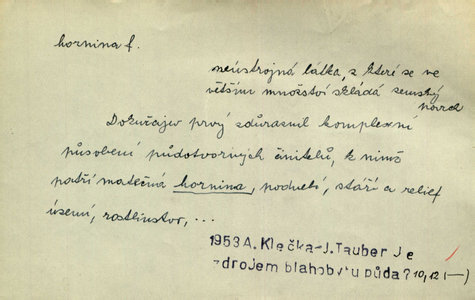 hornina f.
neústrojná látka, z které se ve
větším množství skládá zemský
povrch
Dokučajev prvý zdůraznil komplexní
působení půdotvorných činitelů, k nimž
patří matečná hornina, podnebí, stáří a relief
území, rostlinstvo, ...
1953 A. Klečka-J. Tauber Je
zdrojem blahobytu půda? 10,12 (—)